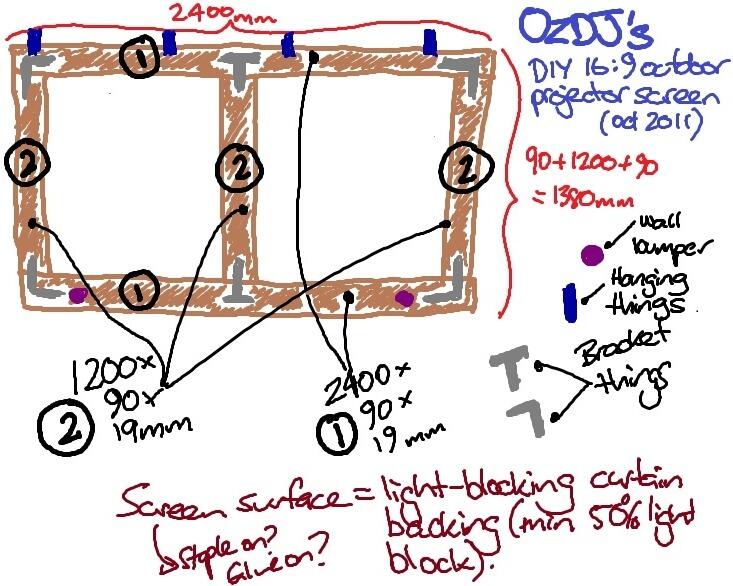 2400mm
OzDJ's
DIY 16:9 outdoor
projector screen
(oct 2011)
1
2
2
2
90+1200+90
=1380mm
wall
bumper
1
Hanging
things
1200x
90x
19mm
2
2400x
90x
19mm
1
Bracket
things
Screen surface = light-blocking curtain
backing (min 50% light
block).
Staple on?
Glue on?